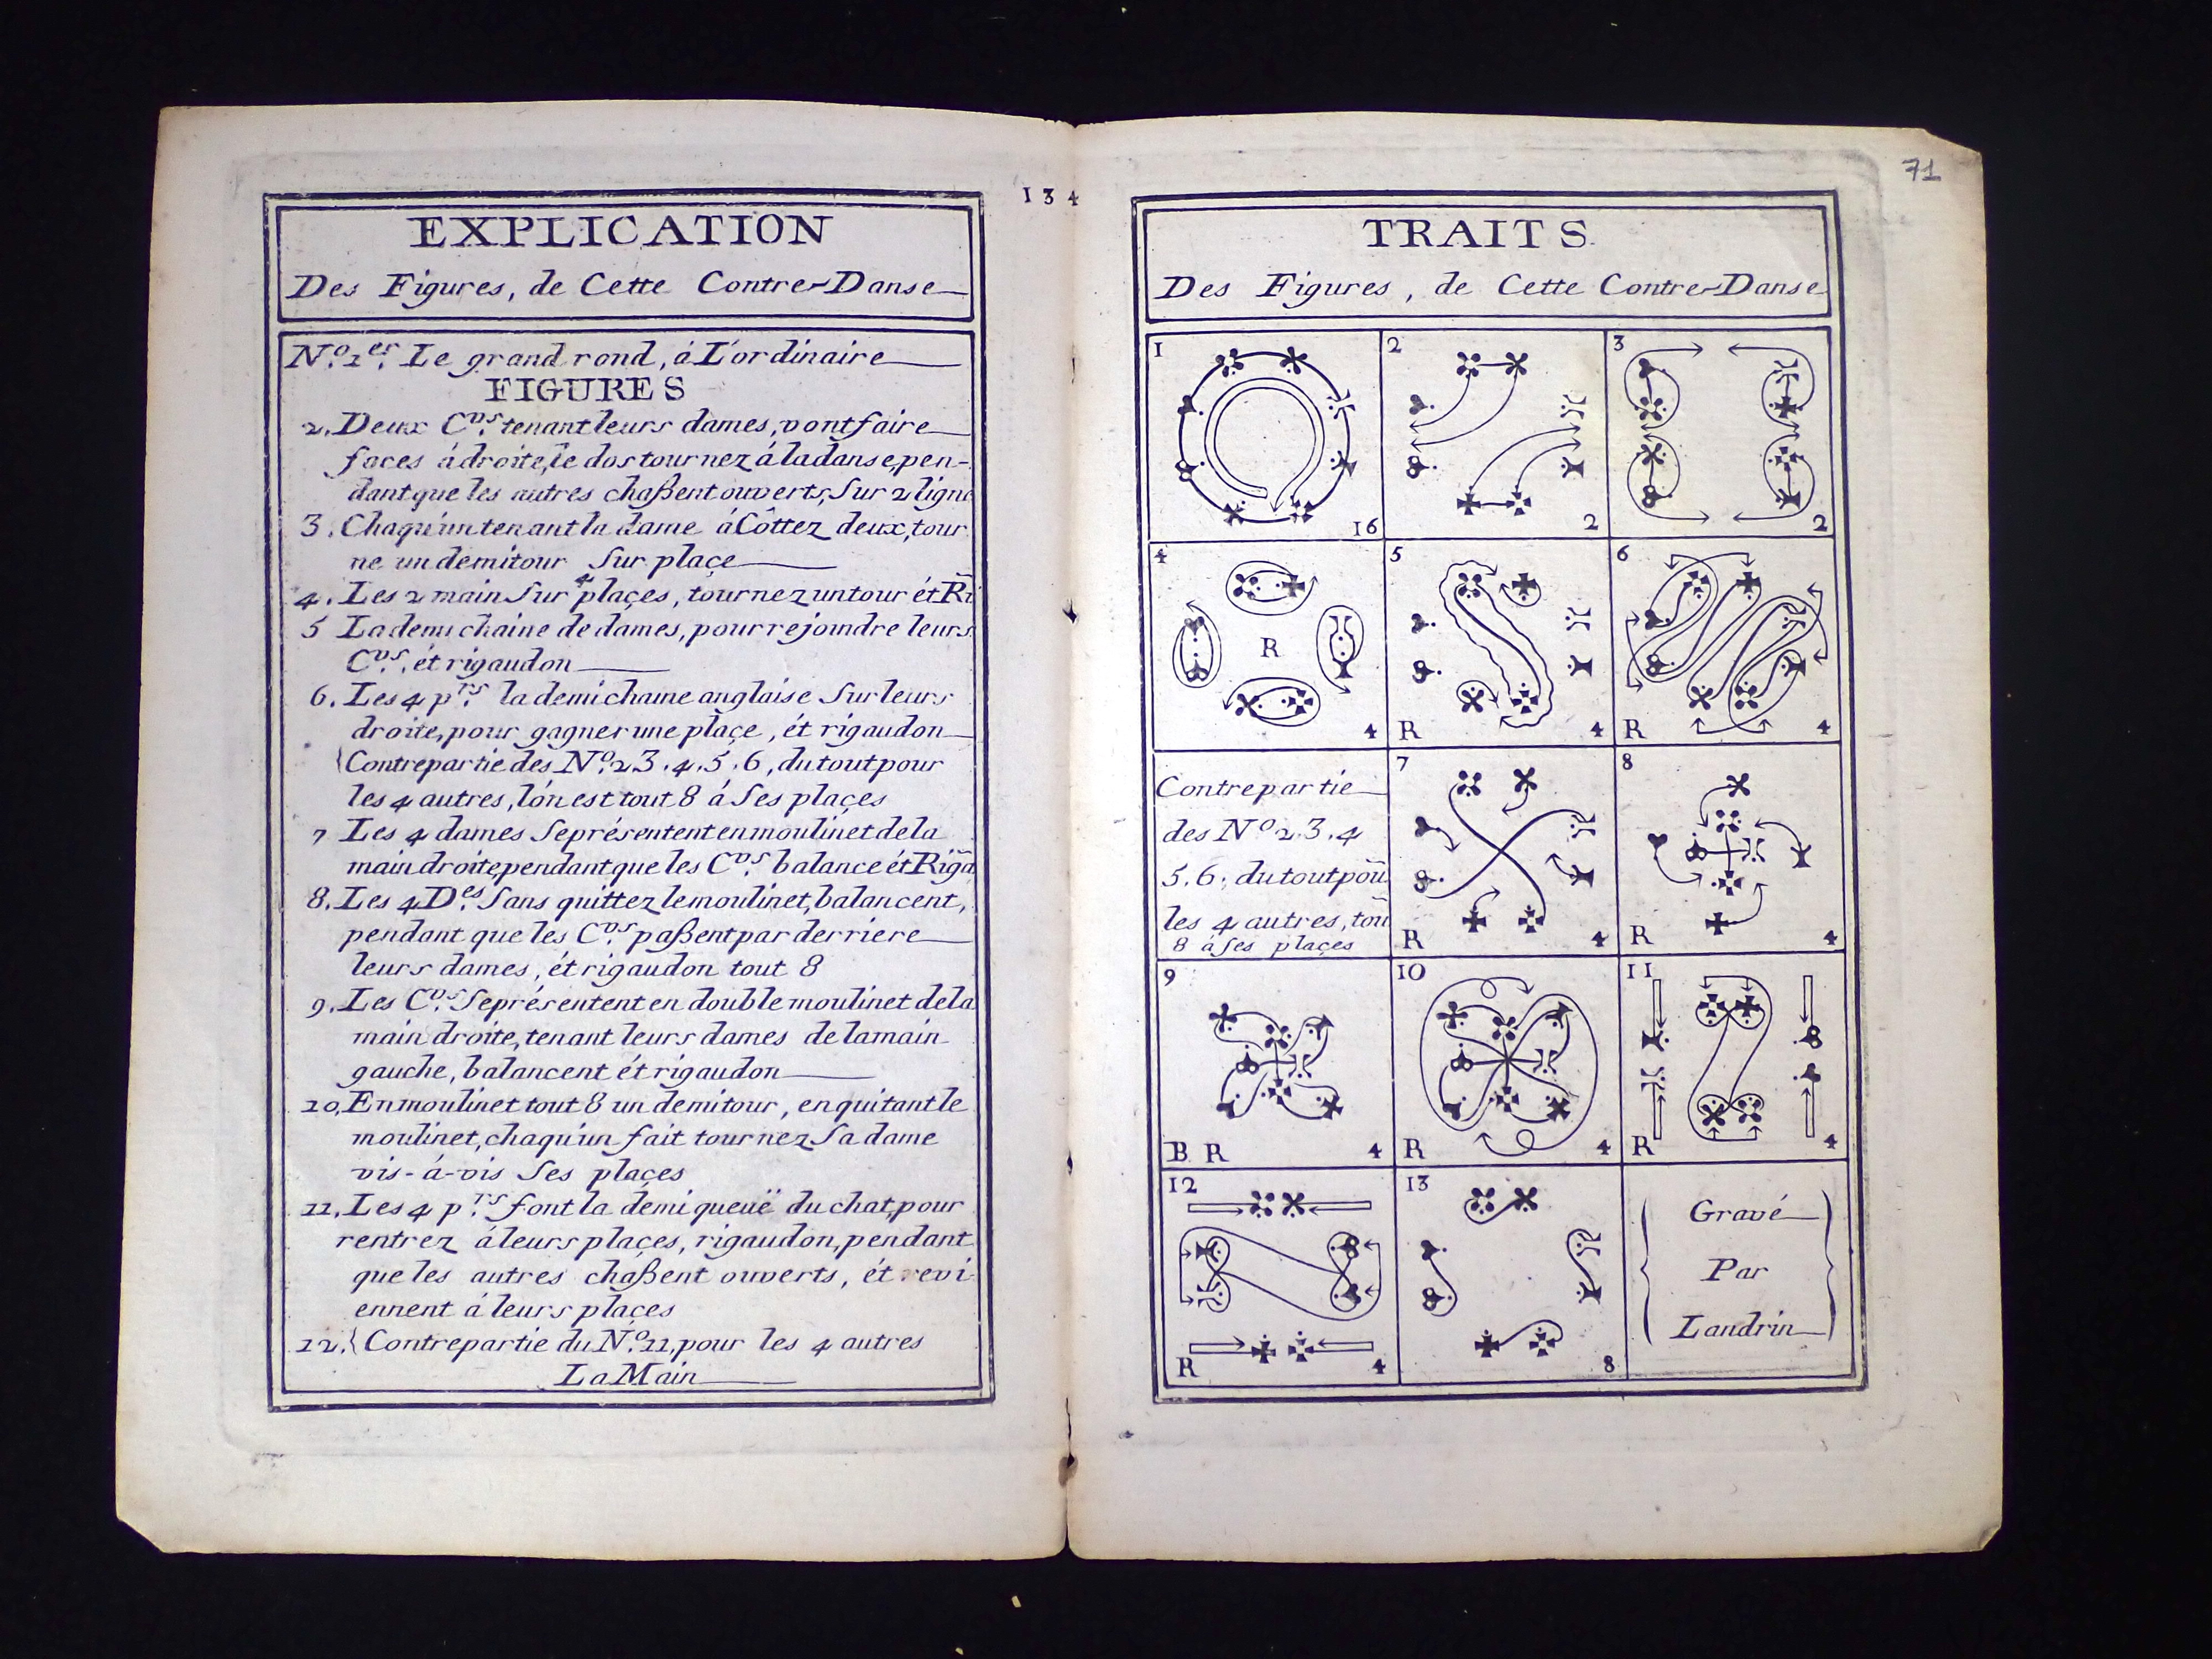 134
EXPLICATION
Des Figures, de Cette Contre-Danse
N.º 1.er Le grand rond, á L'ordinaire
FIGURES
2. Deux C.vs tenant leurs dames, vont faire
faces á droite, le dos tournez á la danse, pen-
dant que les autres chaßent ouverts, Sur 2 ligne
3. Chaqu'un tenant la dame á Côttez deux, tour
ne un demi tour Sur plaçe
4. Les 2 main Sur 4 plaçes, tournez un tour ét Ri
5 La demi chaine de dames, pour rejoindre leurs
C.vs, ét rigaudon
6. Les 4 p.rs la demi chaine anglaise Sur leurs
droite, pour gagner une plaçe, ét rigaudon
Contrepartie des N.º 2 3. 4. 5. 6, du tout pour
les 4 autres, lón est tout 8 á Ses plaçes
7 Les 4 dames Se présentent en moulinet de la
main droite pendant que les C.vs balance ét Riga
8. Les 4 D.es Sans quittez le moulinet, balancent,
pendant que les C.vs paßent par derriere
leurs dames, ét rigaudon tout 8
9. Les C.vs Se présentent en double moulinet de la
main droite, tenant leurs dames de la main
gauche, balancent ét rigaudon
10, En moulinet tout 8 un demi tour, en quitant le
moulinet, chaqu'un fait tournez Sa dame
vis-á-vis Ses plaçes
11, Les 4 p.rs font la demi queuë du chat, pour
rentrez á leurs plaçes, rigaudon, pendant
que les autres chaßent ouverts, ét revi-
ennent á leurs plaçes
12. Contrepartie du N.º 11, pour les 4 autres
La Main
71
TRAITS
Des Figures, de Cette Contre-Danse
1
16
2
2
3
2
4
R
4
5
R
4
6
R
4
Contrepartie
des N.º 2. 3. 4
5. 6., du tout poũ
les 4 autres, toũ
8 á Ses plaçes
7
R
4
8
R
4
9
B R
4
10
R
4
11
R
4
12
R
4
13
8
Gravé
Par
Landrin